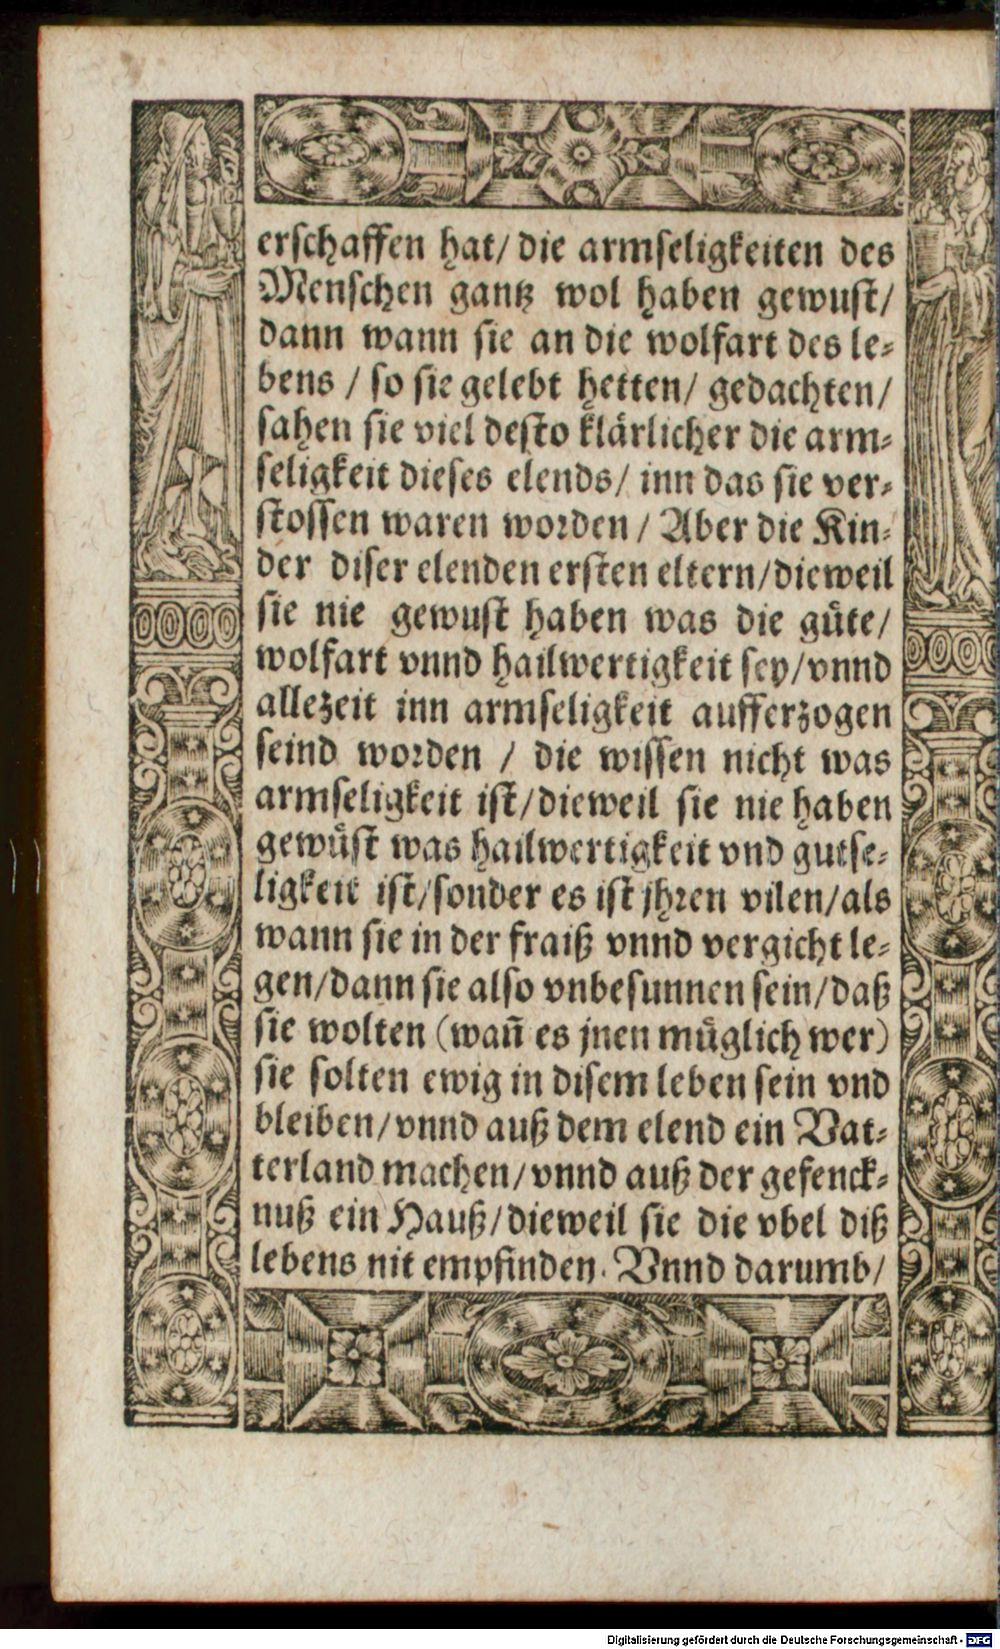 erschaffen hat/ die armseligkeiten des
Menschen gantz wol haben gewust/
dann wann sie an die wolfart des le⸗
bens / so sie gelebt hetten/ gedachten/
sahen sie viel desto klärlicher die arm⸗
seligkeit dieses elends/ inn das sie ver⸗
stossen waren worden / Aber die Kin⸗
der diser elenden ersten eltern/dieweil
sie nie gewust haben was die guͤte/
wolfart vnnd hailwertigkeit sey/vnnd
allezeit inn armseligkeit aufferzogen
seind worden / die wissen nicht was
armseligkeit ist/dieweil sie nie haben
gewuͤst was hailwertigkeit vnd gutse⸗
ligkeit ist/sonder es ist jhren vilen/als
wann sie in der fraiß vnnd vergicht le⸗
gen/dann sie also vnbesunnen sein/daß
sie wolten (wañ es jnen muͤglich wer)
sie solten ewig in disem leben sein vnd
bleiben/vnnd auß dem elend ein Vat⸗
terland machen/vnnd auß der gefenck⸗
nuß ein Hauß/dieweil sie die vbel diß
lebens nit empfinden. Vnnd darumb/
Digitalisierung gefördert durch die Deutsche Forschungsgemeinschaft - DFG